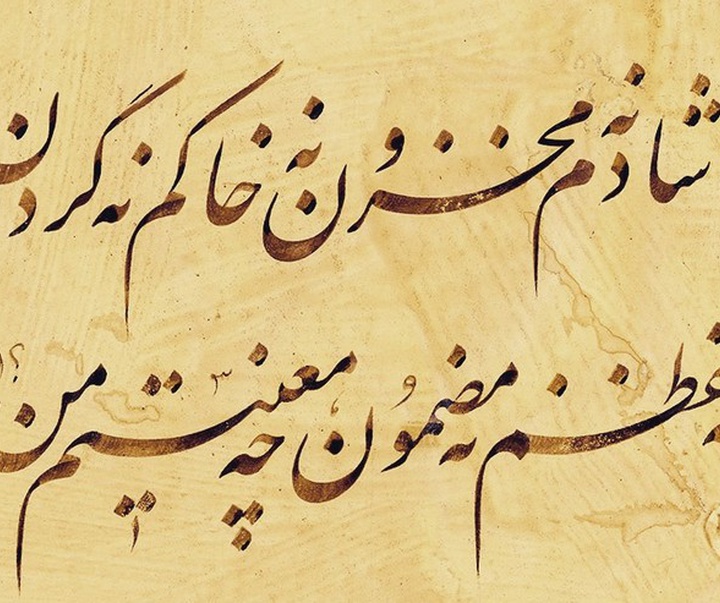 شادم نه محزون نه خاکم نه گردون
لفظم نه مضمون چه معنیستم من